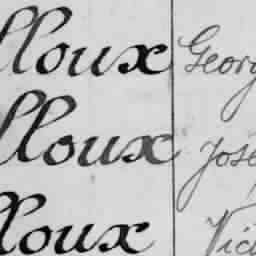 lloux Georg
lloux José
lloux Vict